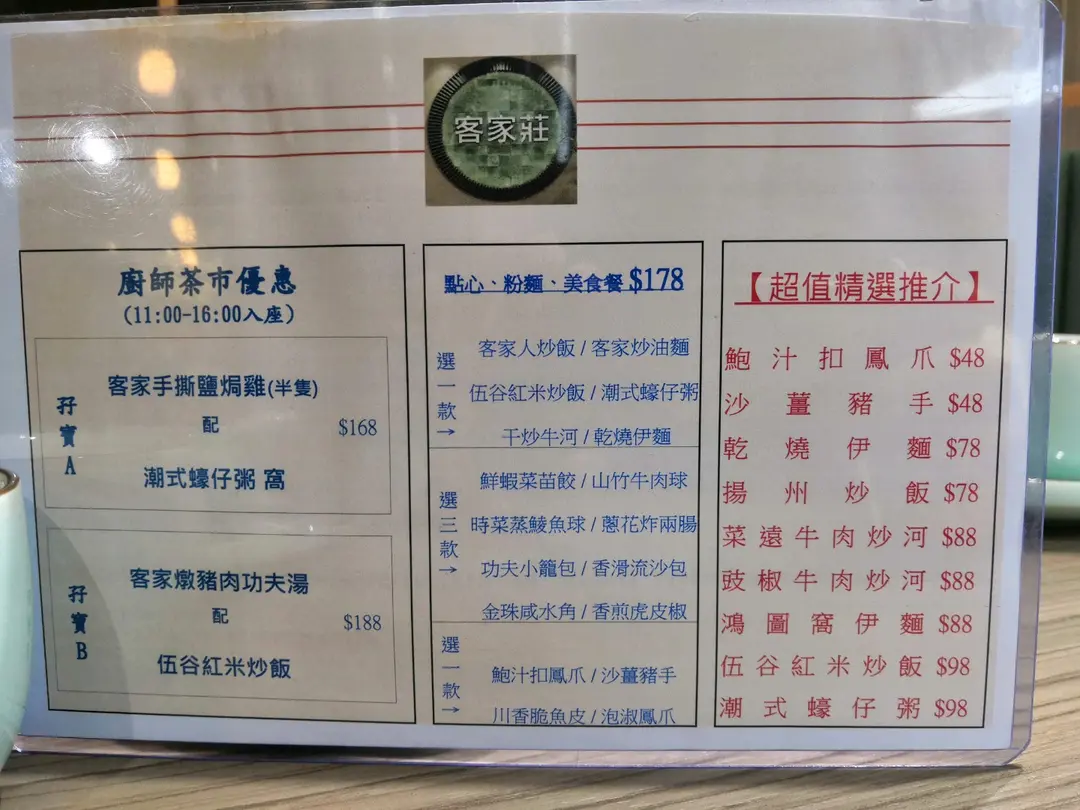 客家莊
廚師茶市優惠
(11:00-16:00入座)
孖寶A
客家手撕鹽焗雞(半隻)
配
$168
潮式蠔仔粥 窩
孖寶B
客家燉豬肉功夫湯
配
$188
伍谷紅米炒飯
點心、粉麵、美食餐 $178
選一款→
客家人炒飯 / 客家炒油麵
伍谷紅米炒飯 / 潮式蠔仔粥
干炒牛河 / 乾燒伊麵
選三款→
鮮蝦菜苗餃 / 山竹牛肉球
時菜蒸鯪魚球 / 蔥花炸兩腸
功夫小籠包 / 香滑流沙包
金珠咸水角 / 香煎虎皮椒
選一款→
鮑汁扣鳳爪 / 沙薑豬手
川香脆魚皮 / 泡淑鳳爪
【超值精選推介】
鮑汁扣鳳爪 $48
沙薑豬手 $48
乾燒伊麵 $78
揚州炒飯 $78
菜遠牛肉炒河 $88
豉椒牛肉炒河 $88
鴻圖窩伊麵 $88
伍谷紅米炒飯 $98
潮式蠔仔粥 $98